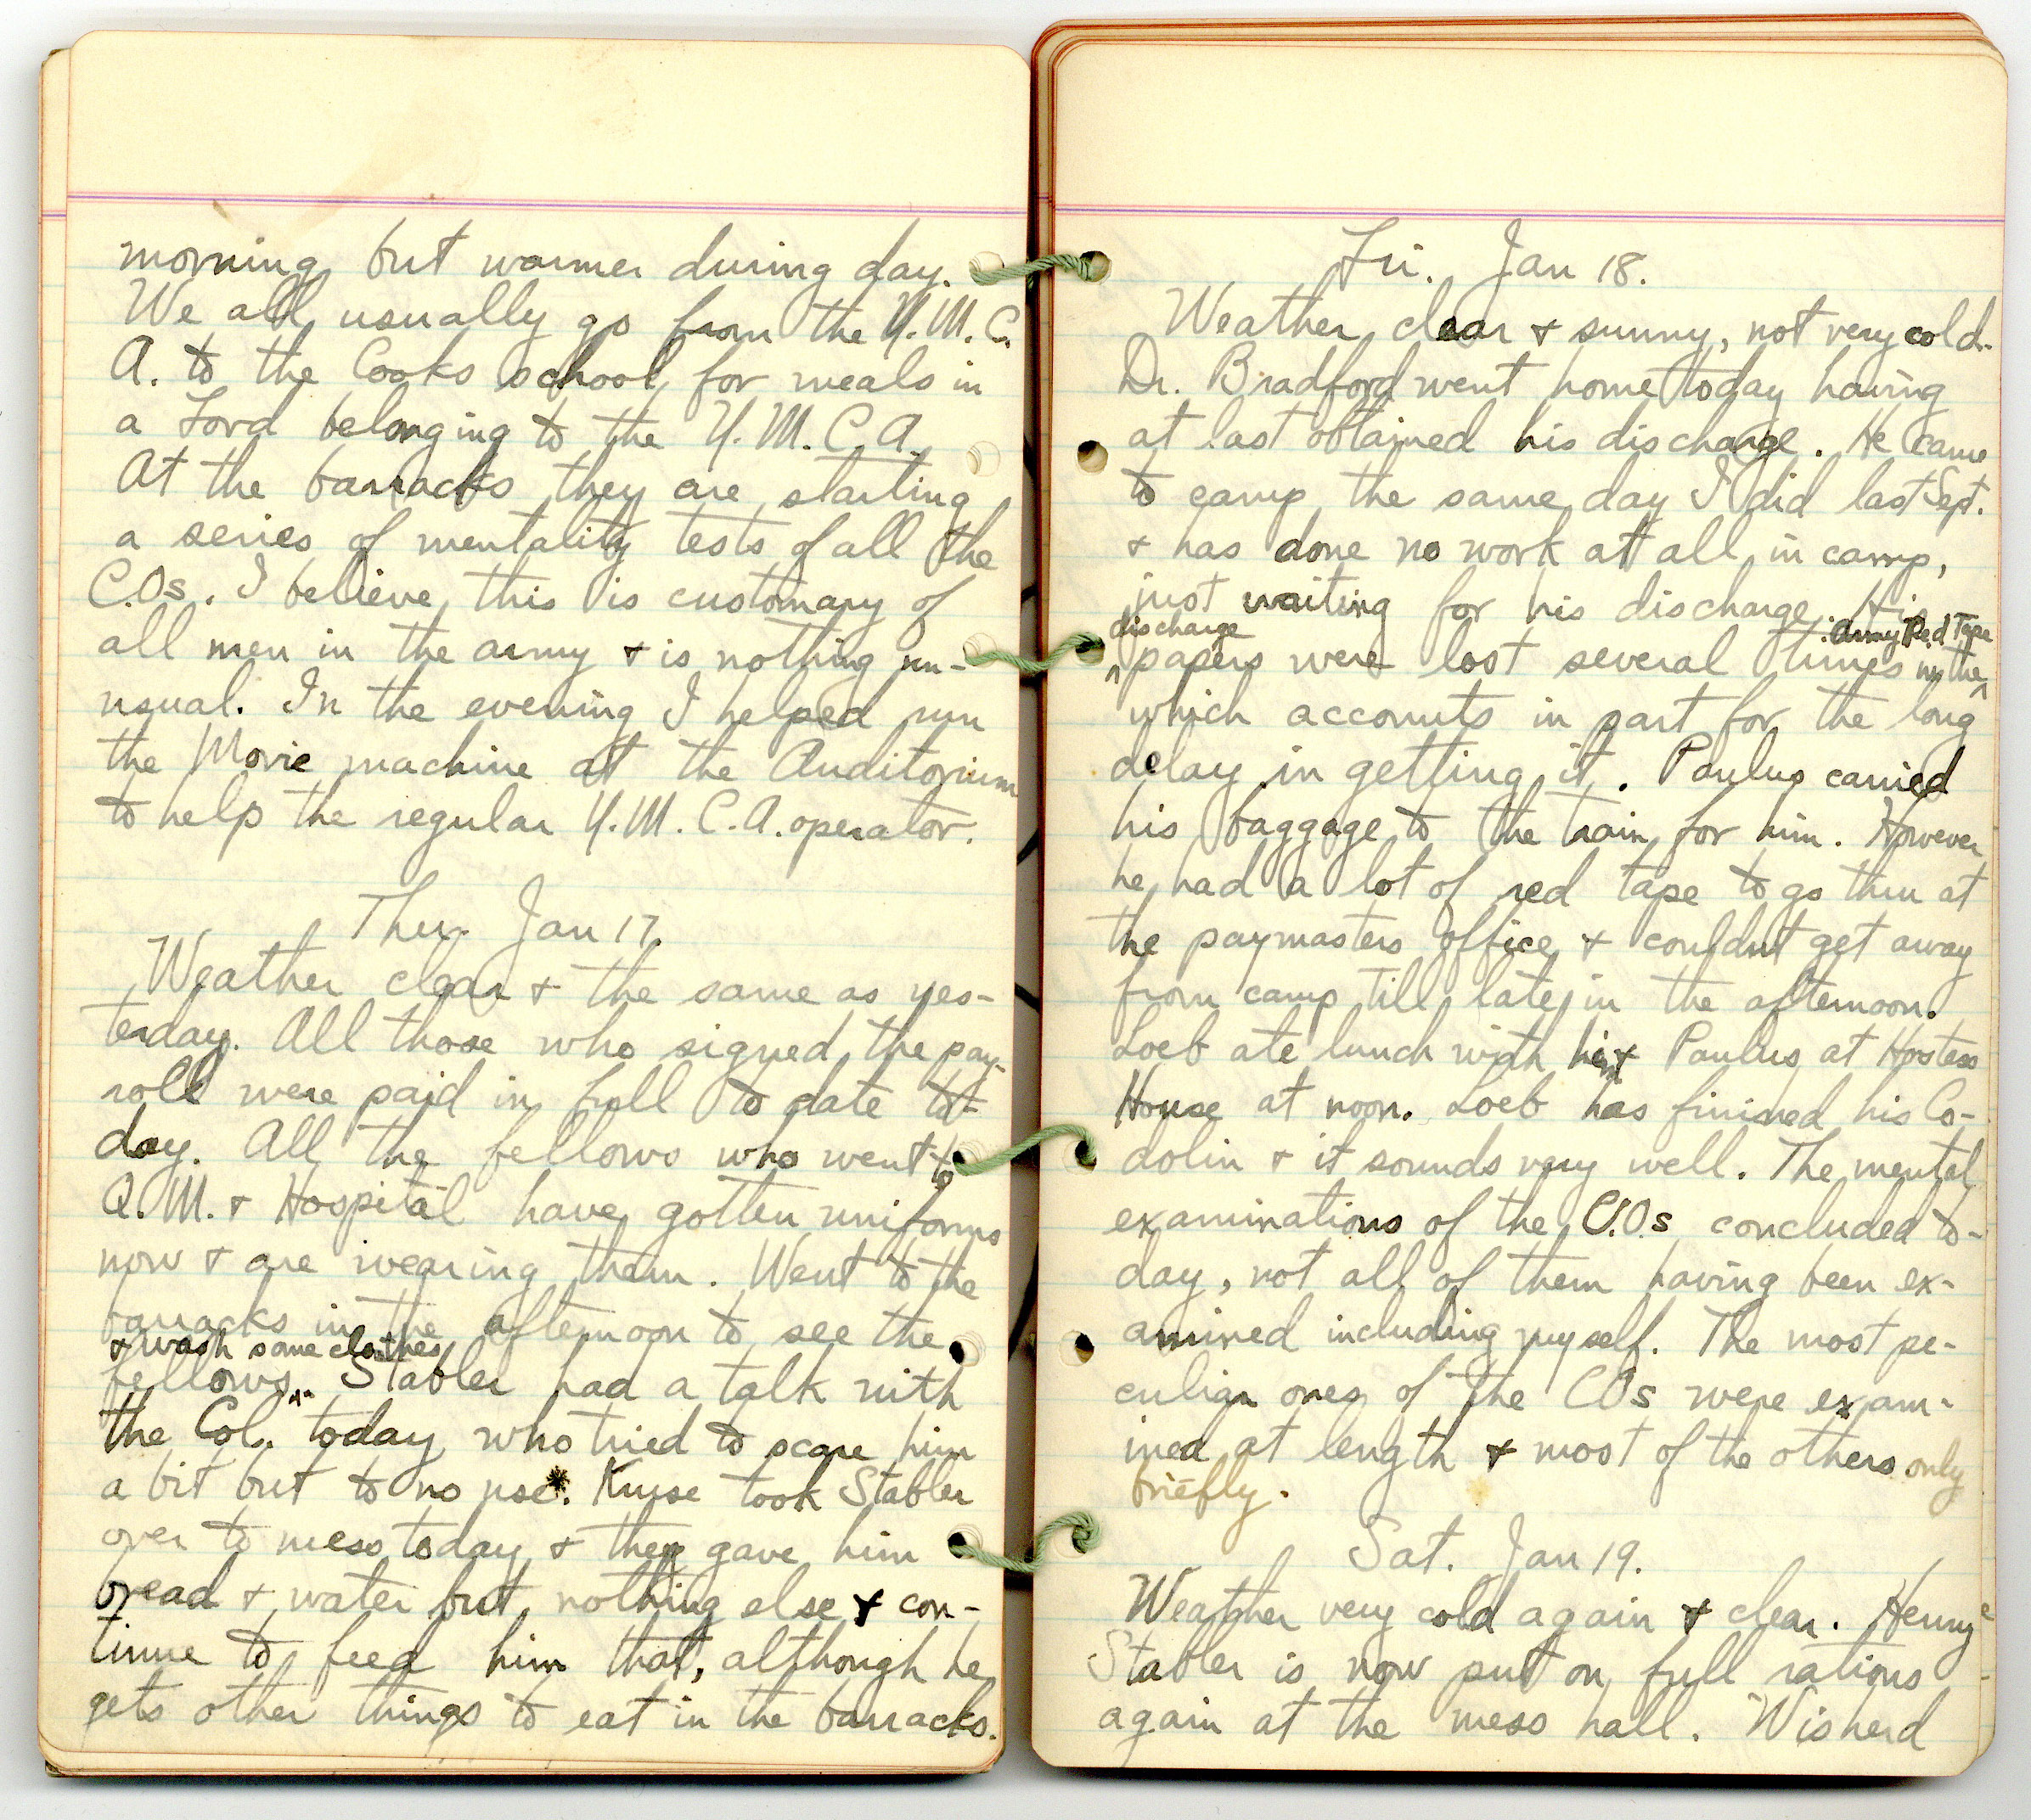 morning but warmer during day.
We all usually go from the Y.M.C.
A. to the Cooks school for meals in
a Ford belonging to the Y.M.C.A.
At the barracks they are starting
a series of mentality tests of all the
C.Os. I believe this is customary of
all men in the army & is nothing un-
usual. In the evening I helped run
the Movie machine at the Auditorium
to help the regular Y.M.C.A. operator.
Thu. Jan 17.
Weather clear & the same as yes-
terday. All those who signed the pay-
roll were paid in full to date to-
day. All the fellows who went to
Q.M. & Hospital have gotten uniforms
now & are wearing them. Went to the
barracks in the afternoon to see the
& wash some clothes
fellows. Stabler had a talk with
the Col. today who tried to scare him
a bit but to no use. Kruse took Stabler
over to mess today & they gave him
bread & water but nothing else & con-
tinue to feed him that, although he
gets other things to eat in the barracks.
Fri. Jan 18.
Weather clear & sunny, not very cold.
Dr. Bradford went home today having
at last obtained his discharge. He came
to camp the same day I did last Sept.
& has done no work at all in camp,
just waiting for his discharge. His
discharge army Red Tape
papers were lost several times in the
which accounts in part for the long
delay in getting it. Paulus carried
his baggage to the train for him. However
he had a lot of red tape to go thru at
the paymasters office & couldnt get away
from camp till late in the afternoon.
Loeb ate lunch with him & Paulus at Hostess
House at noon. Loeb has finished his Co-
dolin & it sounds very well. The mental
examinations of the C.O.s concluded to-
day, not all of them having been ex-
amined including myself. The most pe-
culiar ones of the COs were exam-
ined at length & most of the others only
briefly.
Sat. Jan 19.
Weather very cold again & clear. Henry
Stabler is now put on full rations
again at the mess hall. Wisherd